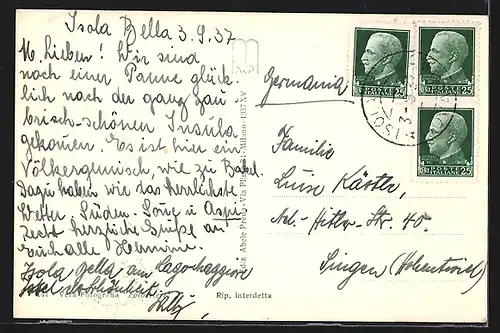 Isola Bella 3.9.37
M. Lieben! Wir sind
nach einer Panne glück-
lich nach der ganz zau
brisch-schönen Insula
gekommen. Es ist hier ein
Völkergemisch, wie zu Babel.
Dazu haben wir das herrlichste
Wetter, Süden-Sonne u
Recht herzliche Grüße an
Euch alle Hermine.
Isola Bella am Lago Maggiore
Willy
Germania
Familie
Luise
Ad.-Hitler-Str. 40.
Singen (Hohentwiel)
POSTE ITALIANE
25
POSTE ITALIANE
25
POSTE ITALIANE
25
Vera Fotografia
Rip. interdetta
Milano - 1937-XV